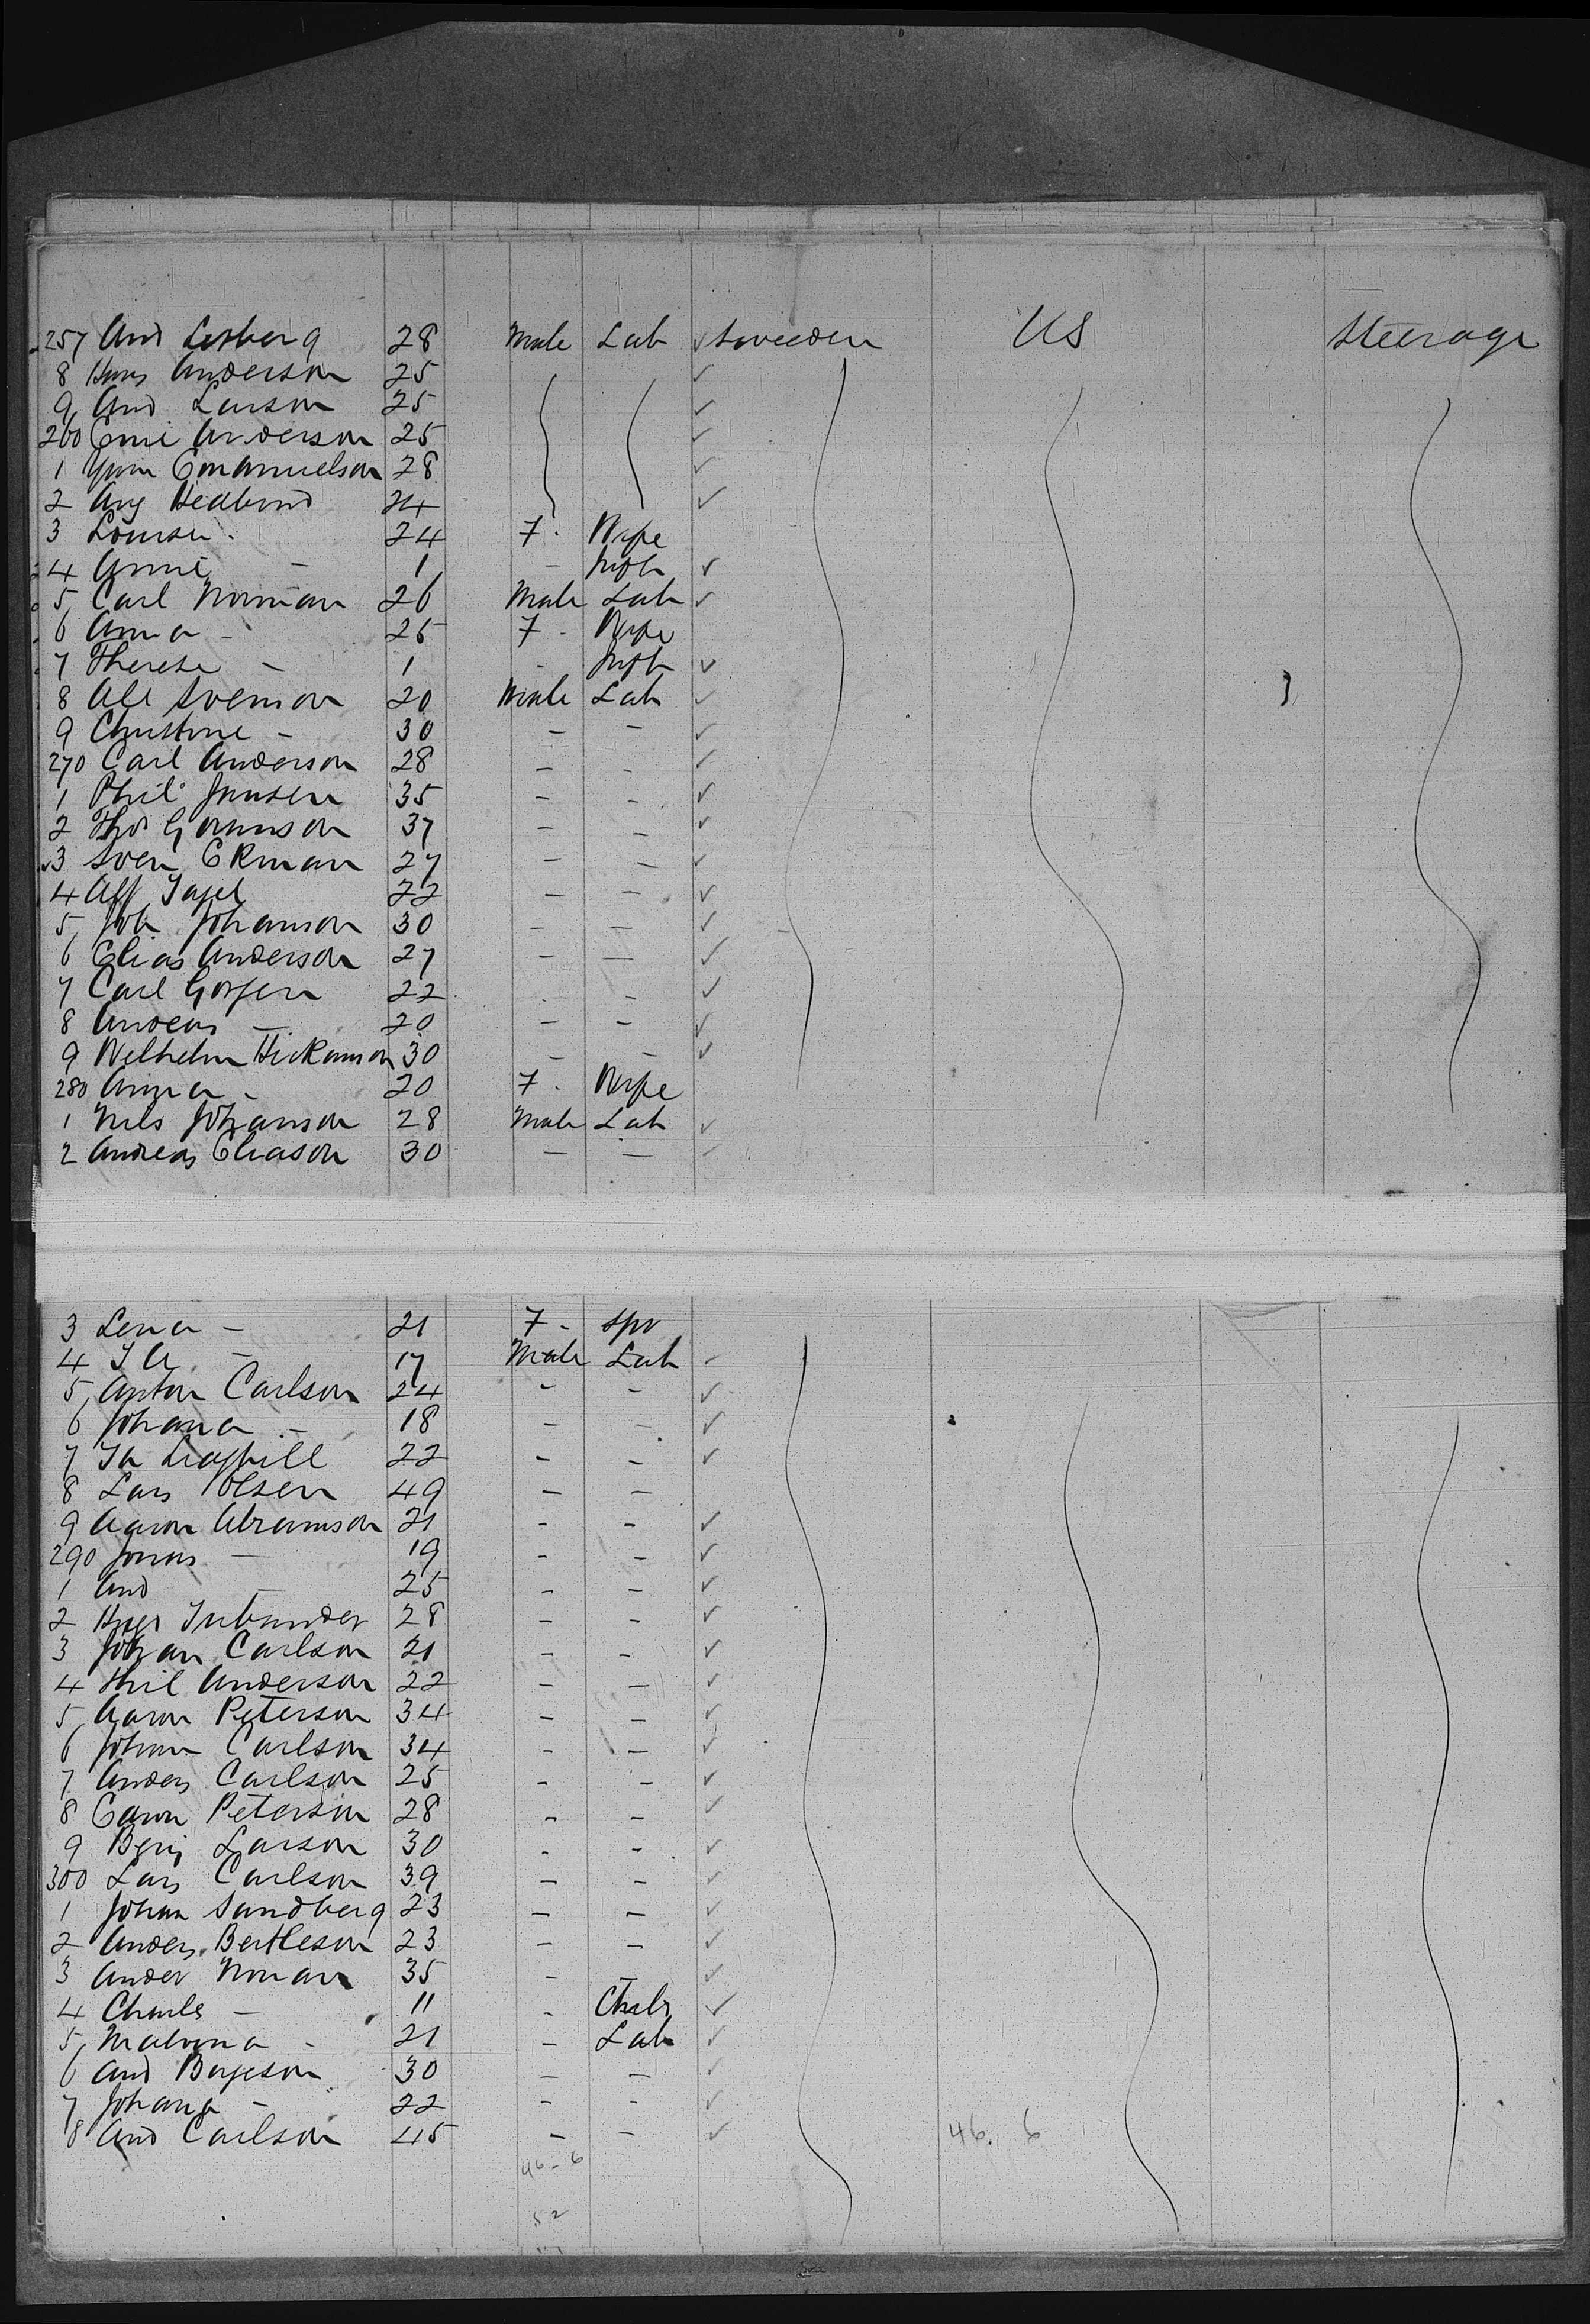 257 And Lesberg 28 Male Lab ✓ Sweeden US Steerage
8 Hans Anderson 25 ✓
9 And Larson 25 ✓
260 Emil Anderson 25 ✓
1 Emanuelson 28 ✓
2 Aug Hedlund 24 ✓
3 Louisa 24 F. Wife
4 Annie - 1 - Inft ✓
5 Carl Norman 26 Male Lab ✓
6 Anna - 25 F. Wife
7 Therese - 1 - Inft ✓
8 Alf Svenson 20 Male Lab ✓
9 Christine - 30 - - ✓
270 Carl Anderson 28 - - ✓
1 Phil Jansen 35 - - ✓
2 Thos 37 - - ✓
3 Sven Ekman 27 - - ✓
4 Alf 22 - - ✓
5 Joh Johanson 30 - - ✓
6 Elias Anderson 27 - - ✓
7 Carl 22 - - ✓
8 Andeas - 20 - - ✓
9 Welhelm Hickanson 30 - - ✓
280 Anna - 20 F. Wife
1 Nels Johanson 28 Male Lab ✓
2 Andreas Eliason 30 - - ✓
3 Lena - 21 F - Spr
4 J A - 17 Male Lab ✓
5 Anton Carlson 24 - - ✓
6 Johana - 18 - - ✓
7 22 - - ✓
8 Lars Olsen 49 - -
9 Aaron Abramson 21 - - ✓
290 Jonas - 19 - - ✓
1 And - 25 - - ✓
2 28 - - ✓
3 Johan Carlson 21 - - ✓
4 Anderson 22 - - ✓
5 Aaron Peterson 34 - - ✓
6 Johan Carlson 34 - - ✓
7 Anders Carlson 25 - - ✓
8 Peterson 28 - - ✓
9 Benj Larson 30 - - ✓
300 Lars Carlson 39 - - ✓
1 Johan Sandberg 23 - - ✓
2 Anders Bertleson 23 - - ✓
3 Ander Noman 35 - - ✓
4 Charles - 11 - ✓
5 Malvina - 21 - Lab ✓
6 And Bargeson 30 - - ✓
7 Johana - 22 - - ✓
8 And Carlson 45 - - ✓
46 - 6 46. 6
52